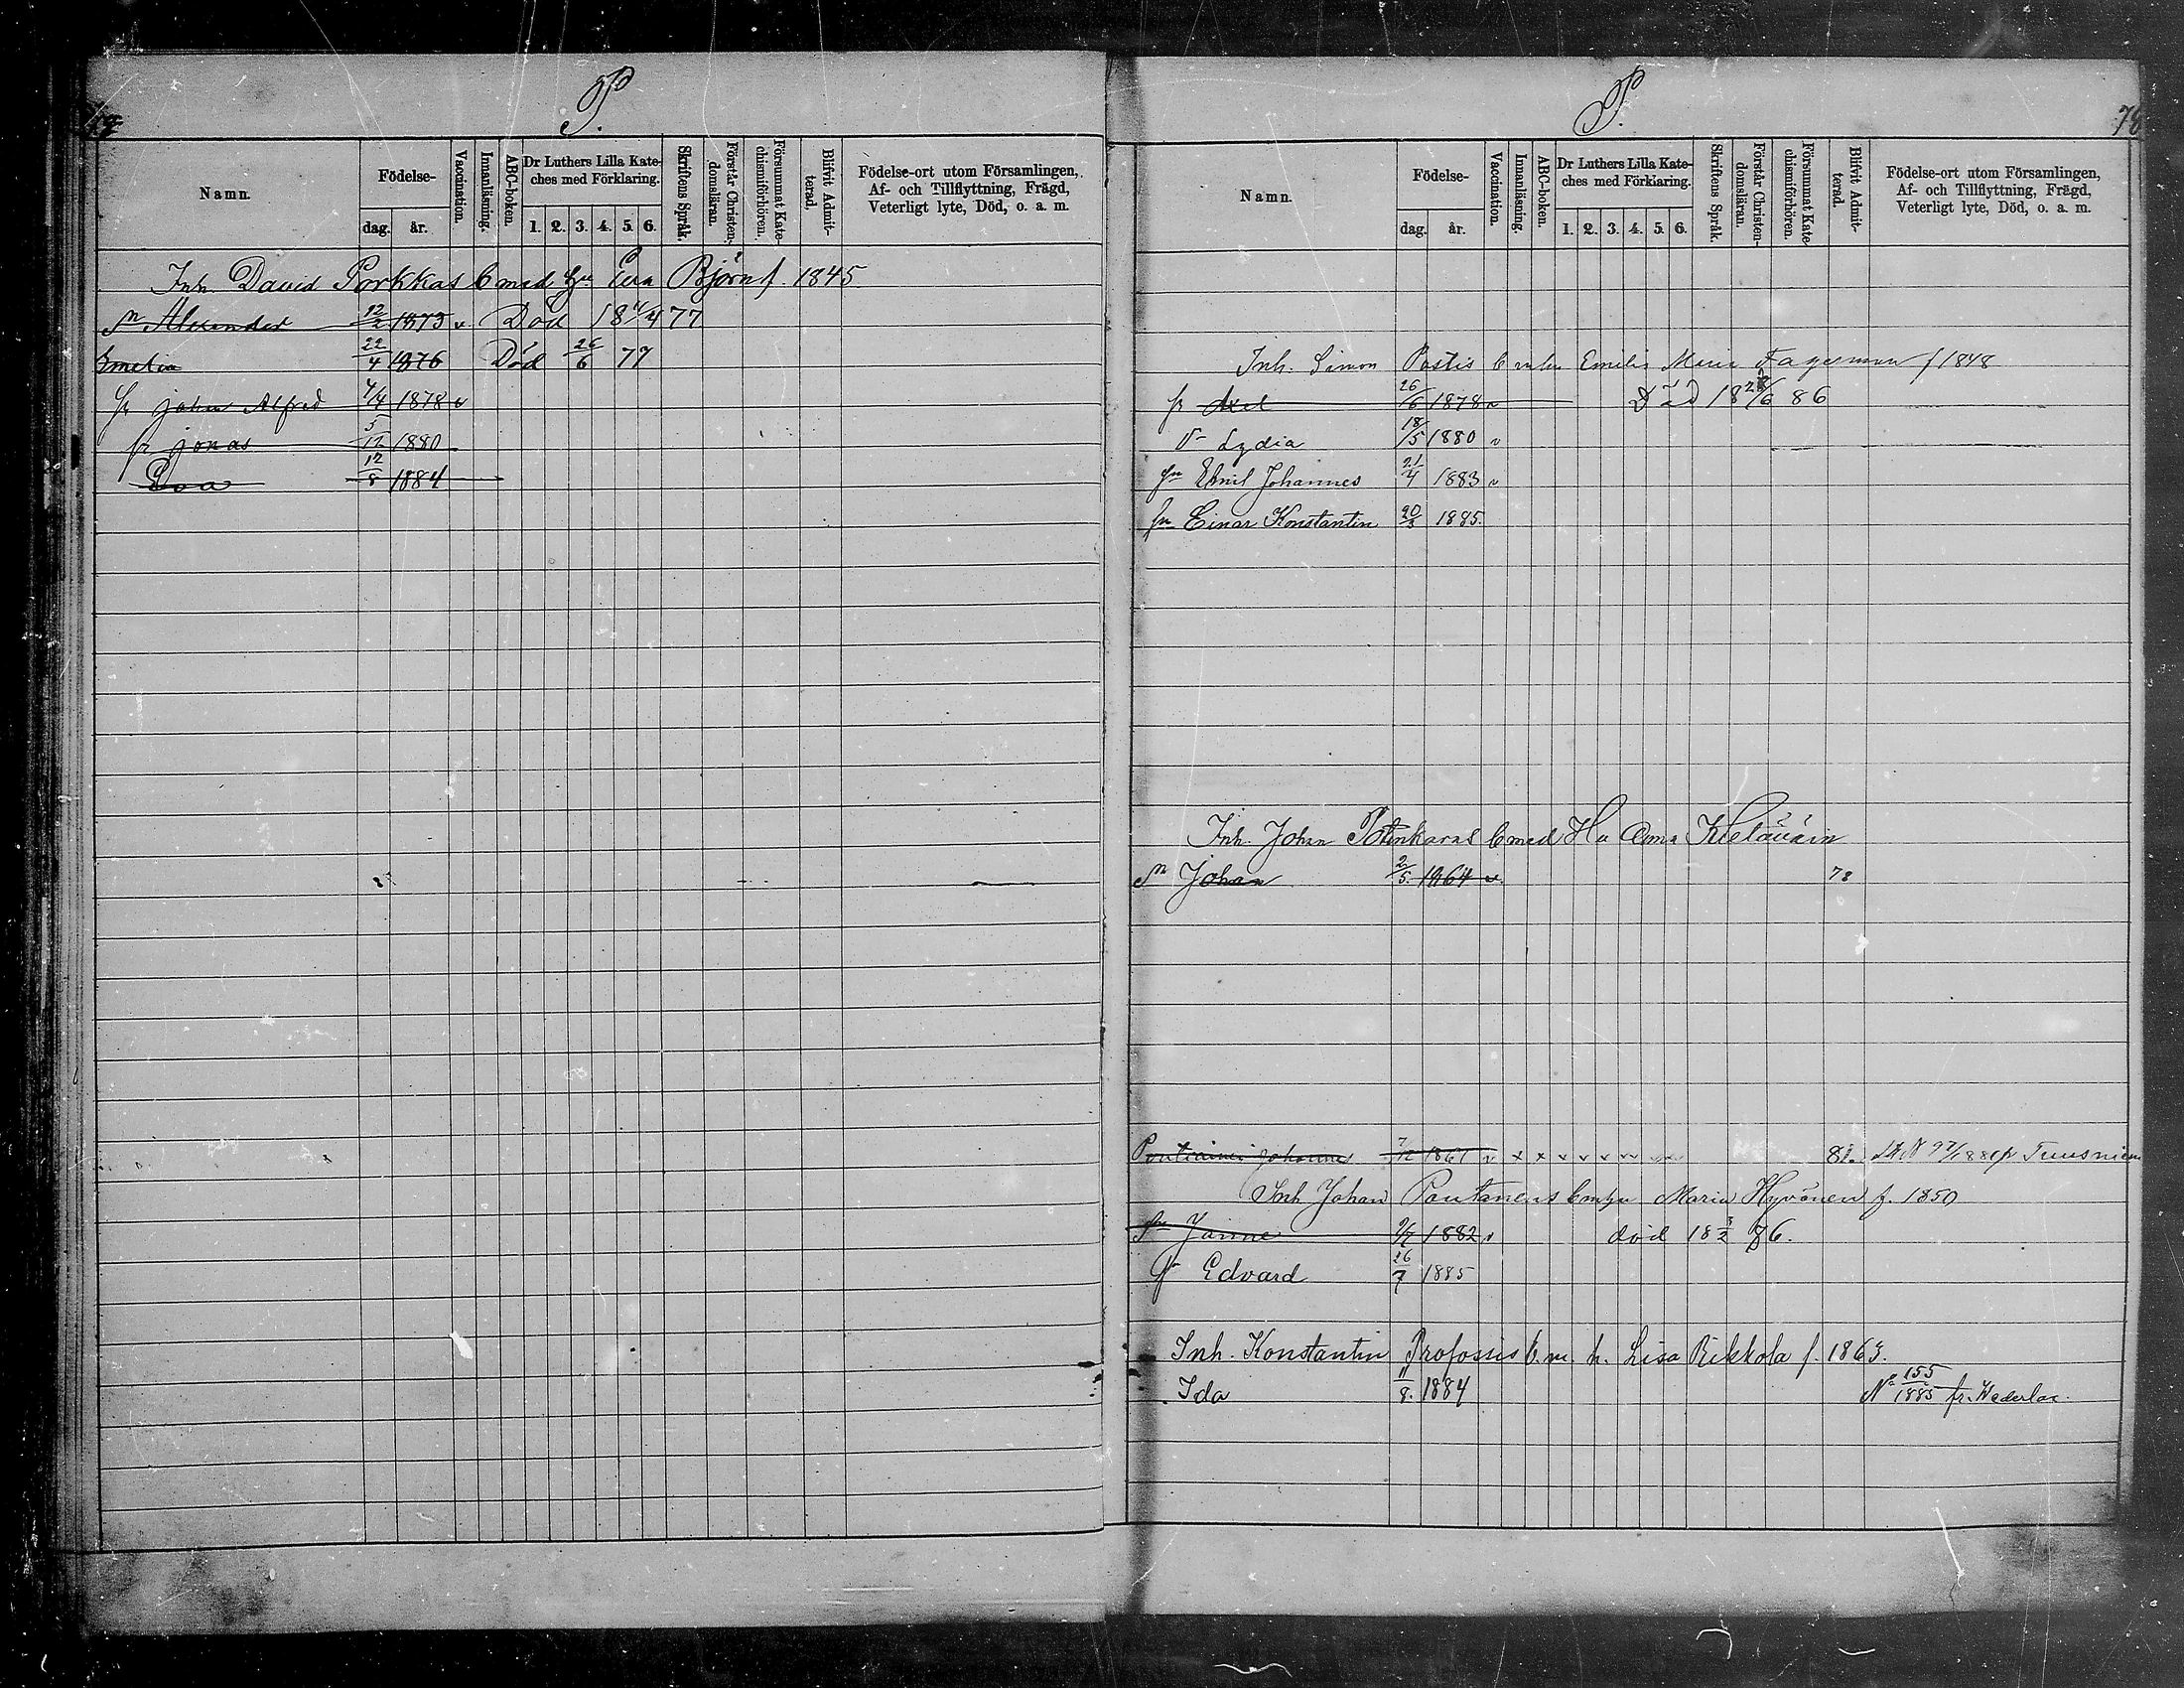 P.
Namn.
Födelse-
dag. år.
Vaccination.
Innanläsning.
ABC-boken.
Dr Luthers Lilla Kate-
ches med Förklaring.
1. 2. 3. 4. 5. 6.
Skriftens Språk.
Förstår Christen-
domsläran.
Försummat Kate-
chismiförhören.
Blifvit Admit-
terad,
Födelse-ort utom Församlingen,
Af- och Tillflyttning, Frägd,
Veterligt lyte, Död, o. a. m.
Inh. David Porkkas b med hu Eva Björn f. 1845.
sn Alexander 12/2 1873 v Död 18 4/4 77
Emelia 22/4 1876 Död 26/6 77
sn johan Alfred 4/4 1878 v
sn jonas 5/12 1880
Eva 12/8 1884
P.
78
Namn.
Födelse-
dag. år.
Vaccination.
Innanläsning.
ABC-boken.
Dr Luthers Lilla Kate-
ches med Förklaring.
1. 2. 3. 4. 5. 6.
Skriftens Språk.
Förstår Christen-
domsläran.
Försummat Kate-
chismiförhören.
Blifvit Admit-
terad.
Födelse-ort utom Församlingen,
Af- och Tillflyttning, Frägd,
Veterligt lyte, Död, o. a. m.
Inh. Simon Postis b m hu Emilia Maria Fagerman f 1848
sn Axel 26/6 1878 v Död 86
Lydia 18/5 1880 v
sn Emil Johannes 21/4 1883 v
sn Einar Konstantin 20/3 1885.
Inh. Johan b med Hu
sn Johan 2/5. 1864 v. 78
Johannes 7/12 1861 v x x v v v v 81.
Inh Johan Poutanens b m hu Maria Hyvönen f. 1850
sn Janne 9/7 1882 v död 18 3/2 86.
Edvard 26/7 1885
Inh. Konstantin Profossis b. m. h. Lisa Rikkola f. 1863.
Ida 11/8. 1884 No 155/1885 fr. Wederlax.